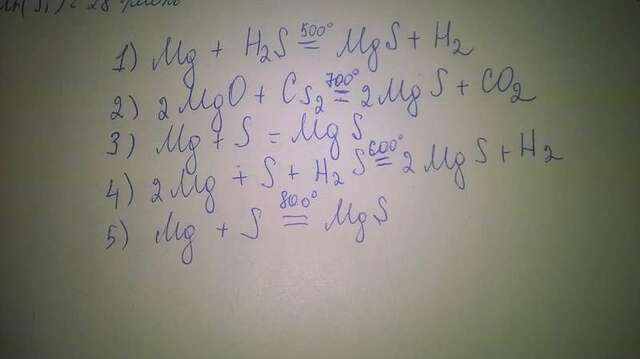 1) Mg + H2S 500° = MgS + H2
2) 2MgO + CS2 700° = 2MgS + CO2
3) Mg + S = MgS
4) 2Mg + S + H2S 600° = 2MgS + H2
5) Mg + S 800° = MgS